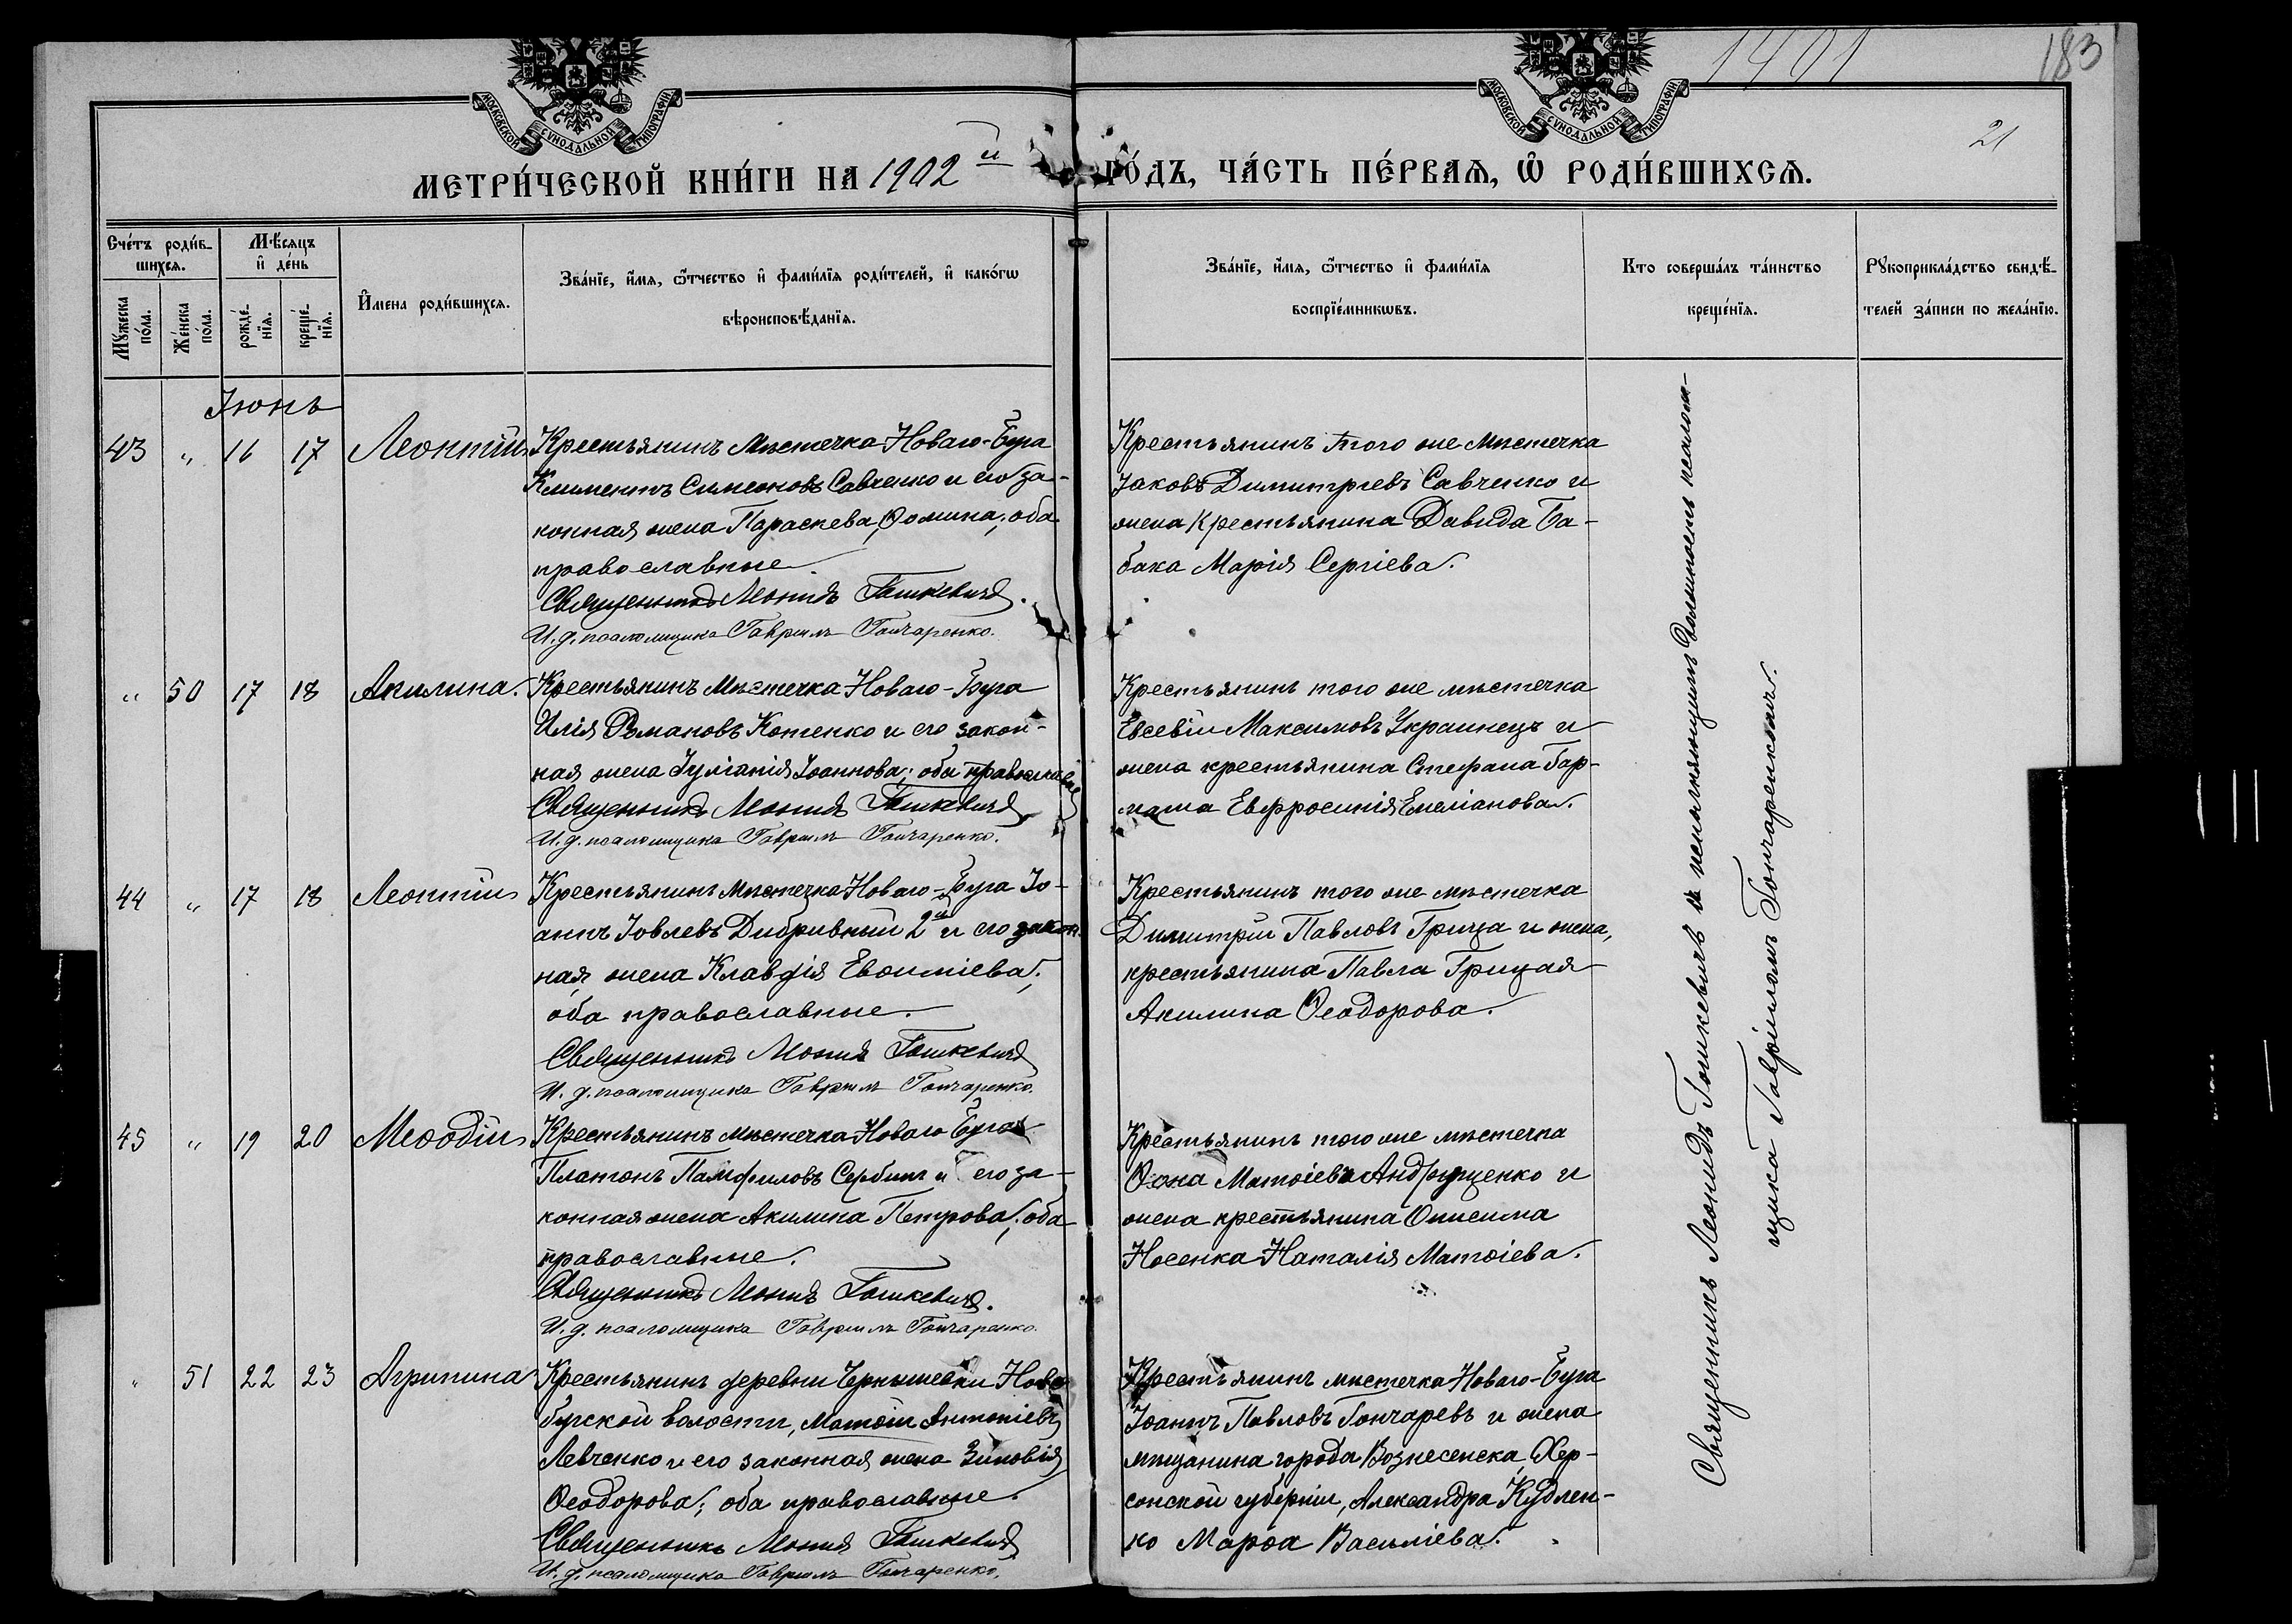 1901
183
21
МОСКОВСКОЙ СУНОДАЛЬНОЙ ТИПОГРАФІИ
МОСКОВСКОЙ СУНОДАЛЬНОЙ ТИПОГРАФІИ
МЕТРИ́ЧЕСКОЙ КНИ́ГИ НА 1902й ГО́ДЪ, ЧА́СТЬ ПЕ́РВАЯ, Ѡ РОДИ́ВШИХСЯ.
Сче́тъ роди́в-
шихся.
Мѣ́сяцъ
и де́нь
Му́жеска
по́ла.
Же́нска
по́ла.
рожде́-
нїя.
креще́-
нїя.
И҆мена роди́вшихся.
Зва́нїе, и҆́мя, ѻ҆́тчество и҆ фами́лїя роди́телей, и҆ како́гѡ
вѣроисповѣ́данїя.
Зва́нїе, и҆́мя, ѻ҆́тчество и҆ фами́лїя
воспрїе́мникѡвъ.
Кто соверша́лъ та́инство
креще́нїя.
Рукоприкла́дство свидѣ́-
телей за́писи по жела́нїю.
Іюнь
43 „ 16 17 Леонтій
Крестьянинъ Мѣстечка Новаго-Буга
Климентъ Симеоновъ Савченко и его за-
конная жена Параскева Ѳомина; оба
православные.
Священникъ Леонидъ Гошкевичъ.
И. д. псаломщика Гавріилъ Гончаренко.
Крестьянинъ того же мѣстечка
Іаковъ Димитріевъ Савченко и
жена крестьянина Давида Ба-
бака Марія Сергіева.
„ 50 17 18 Акилина.
Крестьянинъ Мѣстечка Новаго-Буга
Илія Романовъ Котенко и его закон-
ная жена Іуліанія Іоаннова; оба православные
Священникъ Леонидъ Гошкевичъ
И. д. псаломщика Гавріилъ Гончаренко.
Крестьянинъ того же мѣстечка
Евсевій Максимовъ Украинецъ и
жена крестьянина Стефана Бар-
маша Евфросинія Емеліанова.
44 „ 17 18 Леонтій
Крестьянинъ Мѣстечка Новаго-Буга Іо-
аннъ Іовлевъ Дибривный 2й и его закон-
ная жена Клавдія Евѳиміева;
оба православные.
Священникъ Леонидъ Гошкевичъ
И. д. псаломщика Гавріилъ Гончаренко.
Крестьянинъ того же мѣстечка
Димитрій Павловъ Грица и жена
крестьянина Павла Грицая
Акилина Ѳеодорова.
45 „ 19 20 Меѳодій
Крестьянинъ мѣстечка Новаго Буга
Платонъ Памфиловъ Сербинъ и его за-
конная жена Акилина Петрова; оба
православные.
Священникъ Леонидъ Гошкевичъ.
И. д. псаломщика Гавріилъ Гончаренко.
Крестьянинъ того же мѣстечка
Ѳома Матѳіевъ Андрущенко и
жена крестьянина Онисима
Носенка Наталія Матѳіева.
„ 51 22 23 Агрипина
Крестьянинъ деревни Ново-
бугской волости, Матѳій Антоніевъ
Левченко и его законная жена Зиновія
Ѳеодорова; оба православные.
Священникъ Леонидъ Гошкевичъ
И. д. псаломщика Гавріилъ Гончаренко.
Крестьянинъ мѣстечка Новаго-Буга
Іоаннъ Павловъ Гончаревъ и жена
мѣщанина города Вознесенска, Хер-
сонской губерніи, Александра Кудлен-
ко Марѳа Васильева.
Священникъ Леонидъ Гошкевичъ съ исполняющимъ должность псалом-
щика Гавріиломъ Гончаренкомъ.